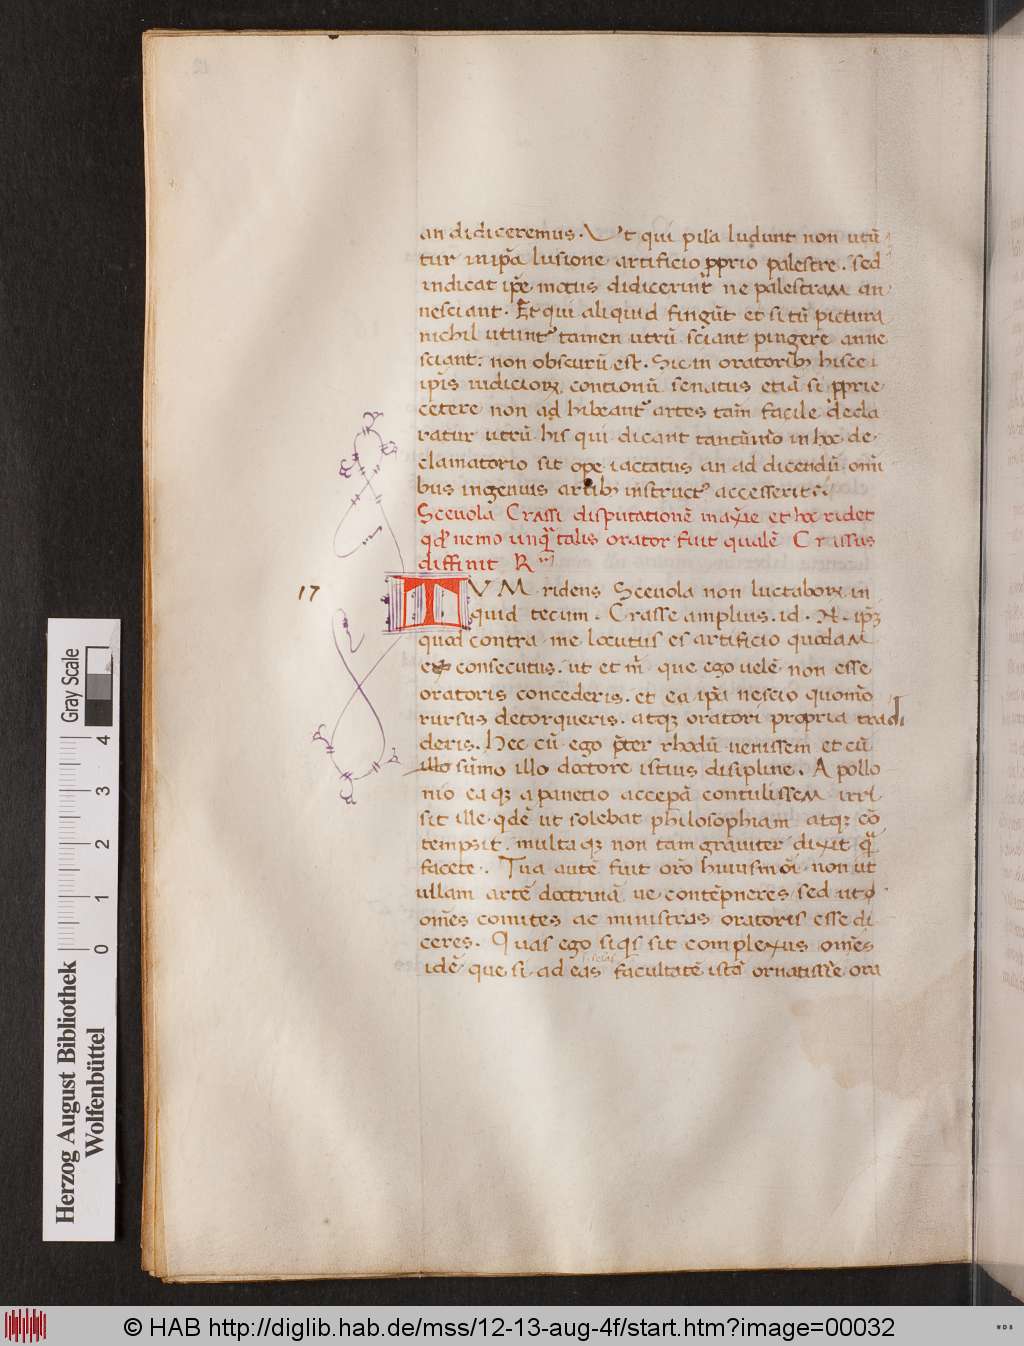 an didiceremus. Ut qui pila ludunt non utũ
tur in ip̃a lusione artificio ꝓprio palestre. sed
indicat ip̃e motus didicerint ne palestram an
nesciant. Et qui aliquid fingũt et si tũ pictura
nichil utunt᷑ tamen utrũ sciant pingere anne
sciant: non obscurũ est. Sic in oratoribꝫ hisce i
ip̃is iudicioꝝ contionũ senatus etiã si ꝓprie
cetere non adhibeant᷑ artes tam̃ facile decla
ratur utrũ his qui dicant tantũm̃o in hoc de
clamatorio sit ope iactatus an ad dicendũ om̃i
bus ingenuis artibꝫ instruct᷒ accesserit.
Sceuola Crassi disputationẽ et hoc ridet
qđ nemo unq̃ talis orator fuit qualẽ Crassus
diffinit Rᵃ
17
TUM ridens Sceuola non luctaboꝝ in
quid tecum. Crasse amplius. id. N. ip̃ꝫ
quod contra me locutus es artificio quodam
es consecutus. ut et m̃ que ego uelẽ non esse
oratoris concederis. et ea ip̃a nescio quom̃o
rursus detorqueris. atqꝫ oratori propria tradi
deris. Hec cũ ego p̃ter rhodũ uenissem et cũ
illo sũmo illo doctore istius discipline. Apollo
nio ea qꝫ a panetio accepã contulissem irri
sit ille qdẽ ut solebat philosophiam atqꝫ cõ
tempsit. multa qꝫ non tam grauiter dixit q̃
facete. Tua autẽ fuit or̃o huiusmõi. non ut
ullam artẽ doctrinã ue contẽpneres sed ut
om̃es comites ac ministras oratoris esse di
ceres. Quas ego si q̃s sit complexus om̃es
idẽ que si ad eas facultatẽ istã ornatissĩe ora
Herzog August Bibliothek
Wolfenbüttel
0 1 2 3 4
Gray Scale
© HAB http://diglib.hab.de/mss/12-13-aug-4f/start.htm?image=00032